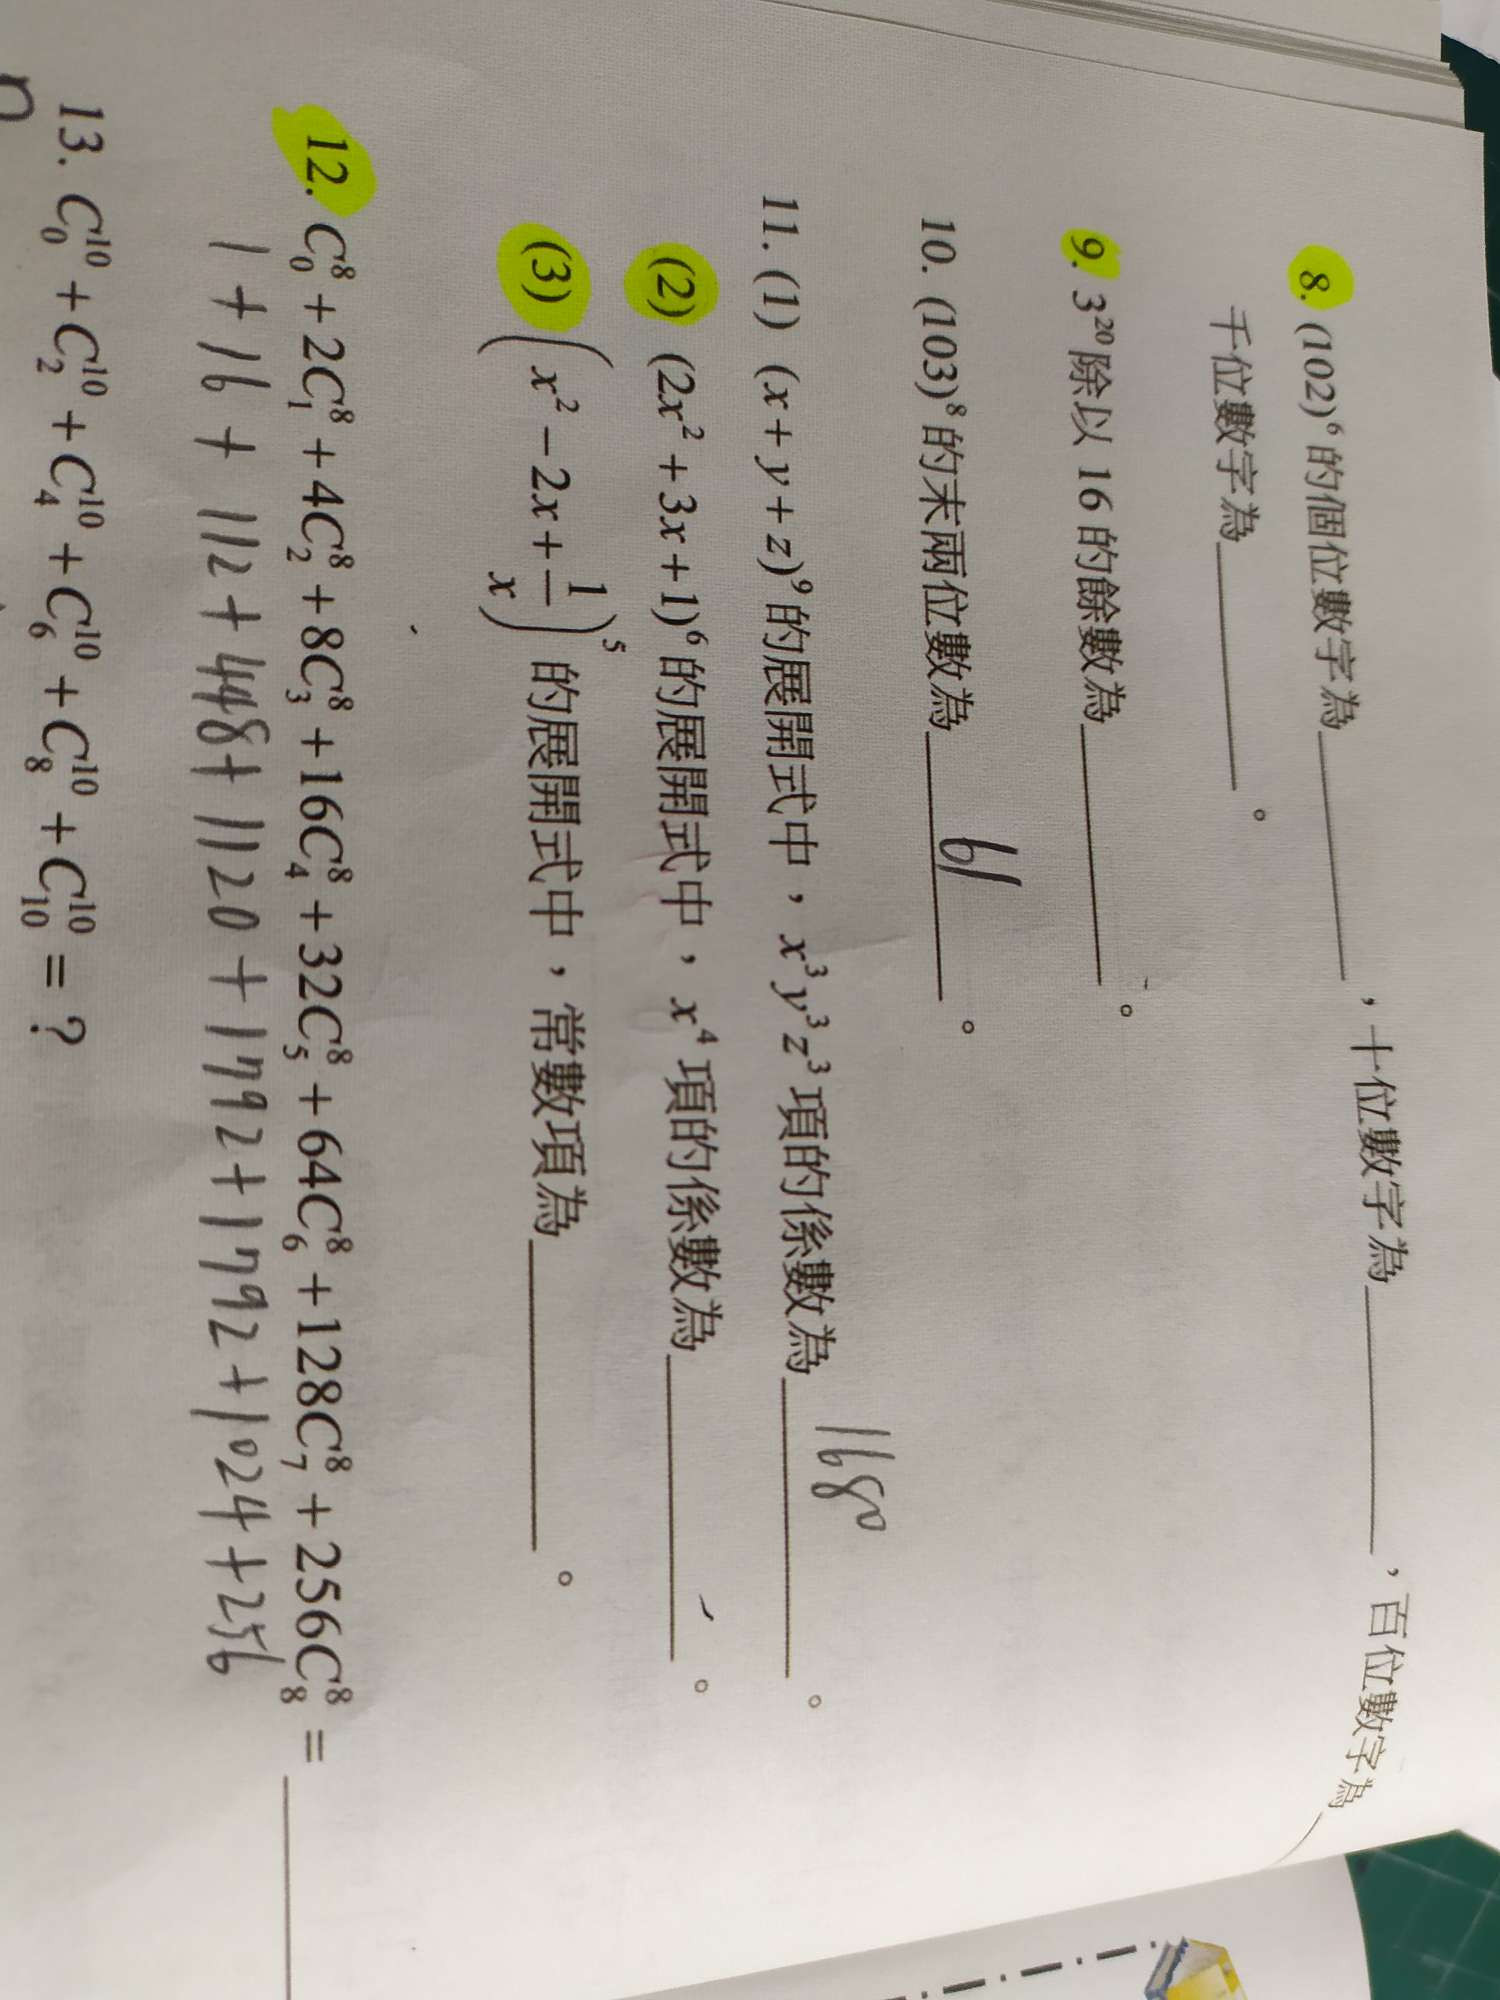 8. (102)⁶的個位數字為______，十位數字為______，百位數字為
千位數字為______。
9. 3²⁰除以 16 的餘數為______。
10. (103)⁸的末兩位數為 61 。
11. (1) (x+y+z)⁹的展開式中，x³y³z³項的係數為 1680 。
(2) (2x²+3x+1)⁶的展開式中，x⁴項的係數為______。
(3) (x²−2x+1/x)⁵的展開式中，常數項為______。
12. C⁸₀+2C⁸₁+4C⁸₂+8C⁸₃+16C⁸₄+32C⁸₅+64C⁸₆+128C⁸₇+256C⁸₈=______
1+16+112+448+1120+1792+1792+1024+256
13. C¹⁰₀+C¹⁰₂+C¹⁰₄+C¹⁰₆+C¹⁰₈+C¹⁰₁₀=?